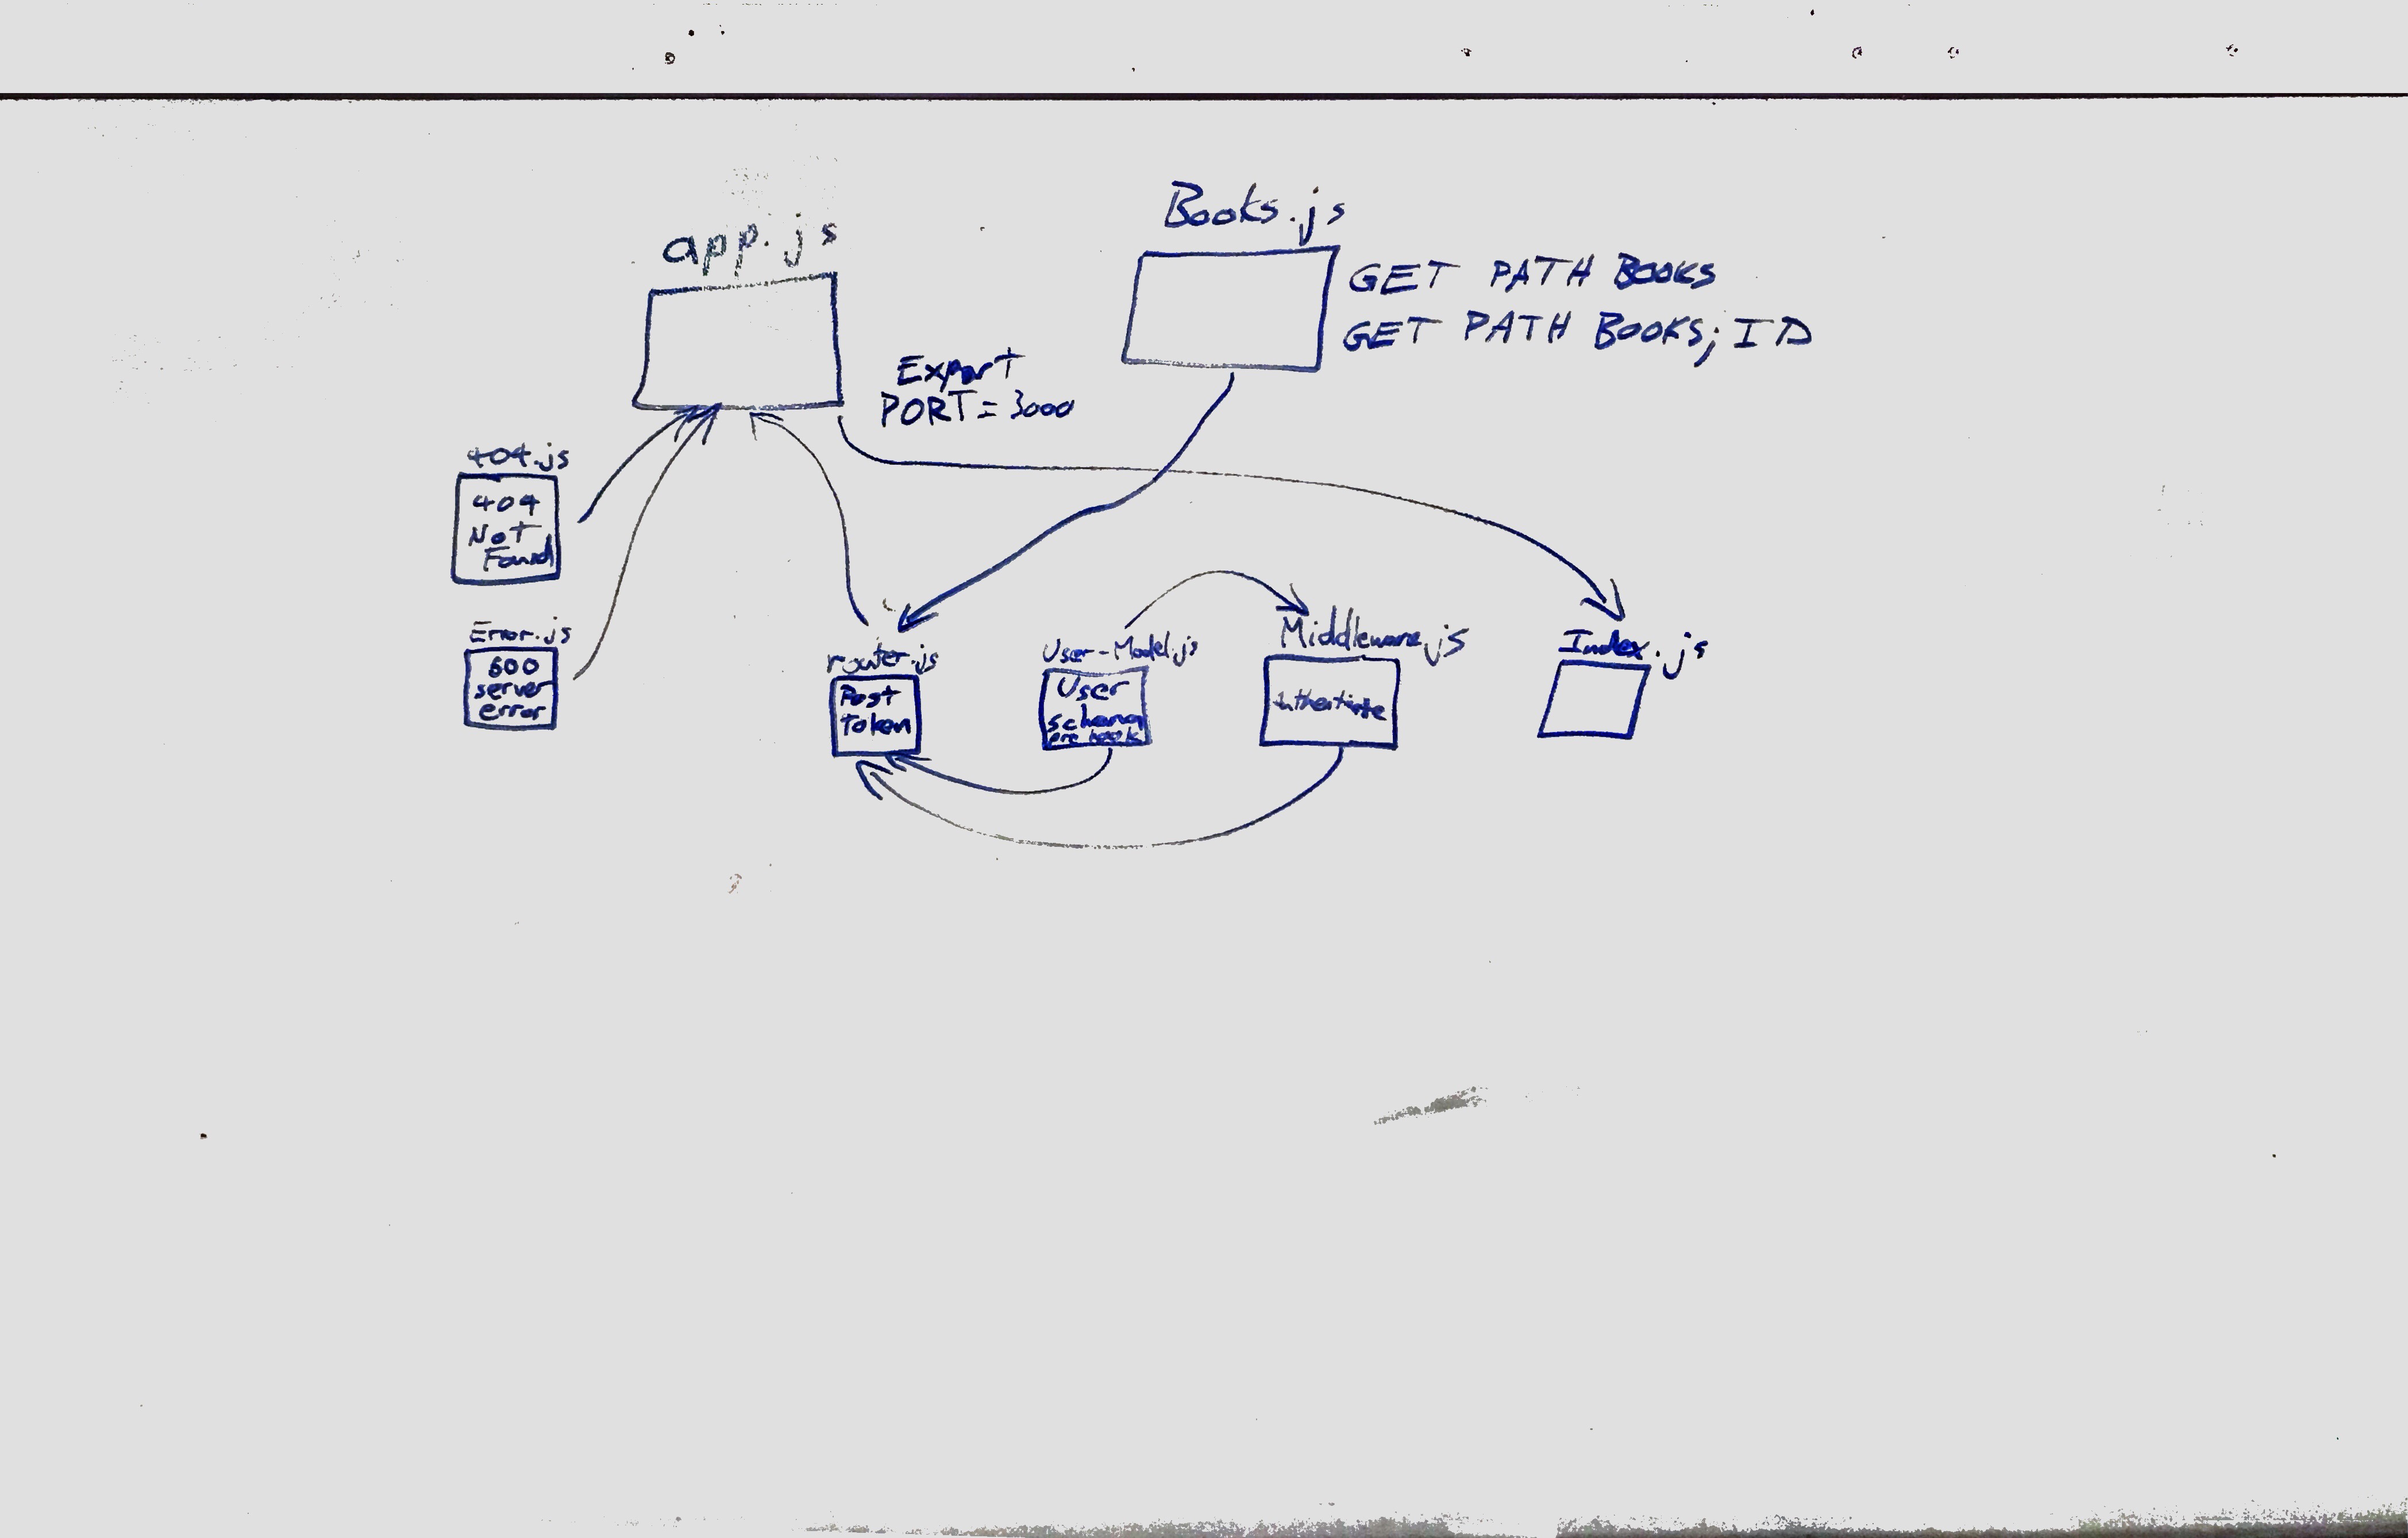 app.js
Books.js
GET PATH BOOKS
GET PATH BOOKS; ID
Export
PORT = 3000
404.js
404
Not
Found
Error.js
500
server
error
router.js
Post
Token
User-Model.js
User
schema
pre hook
Middleware.js
Index.js